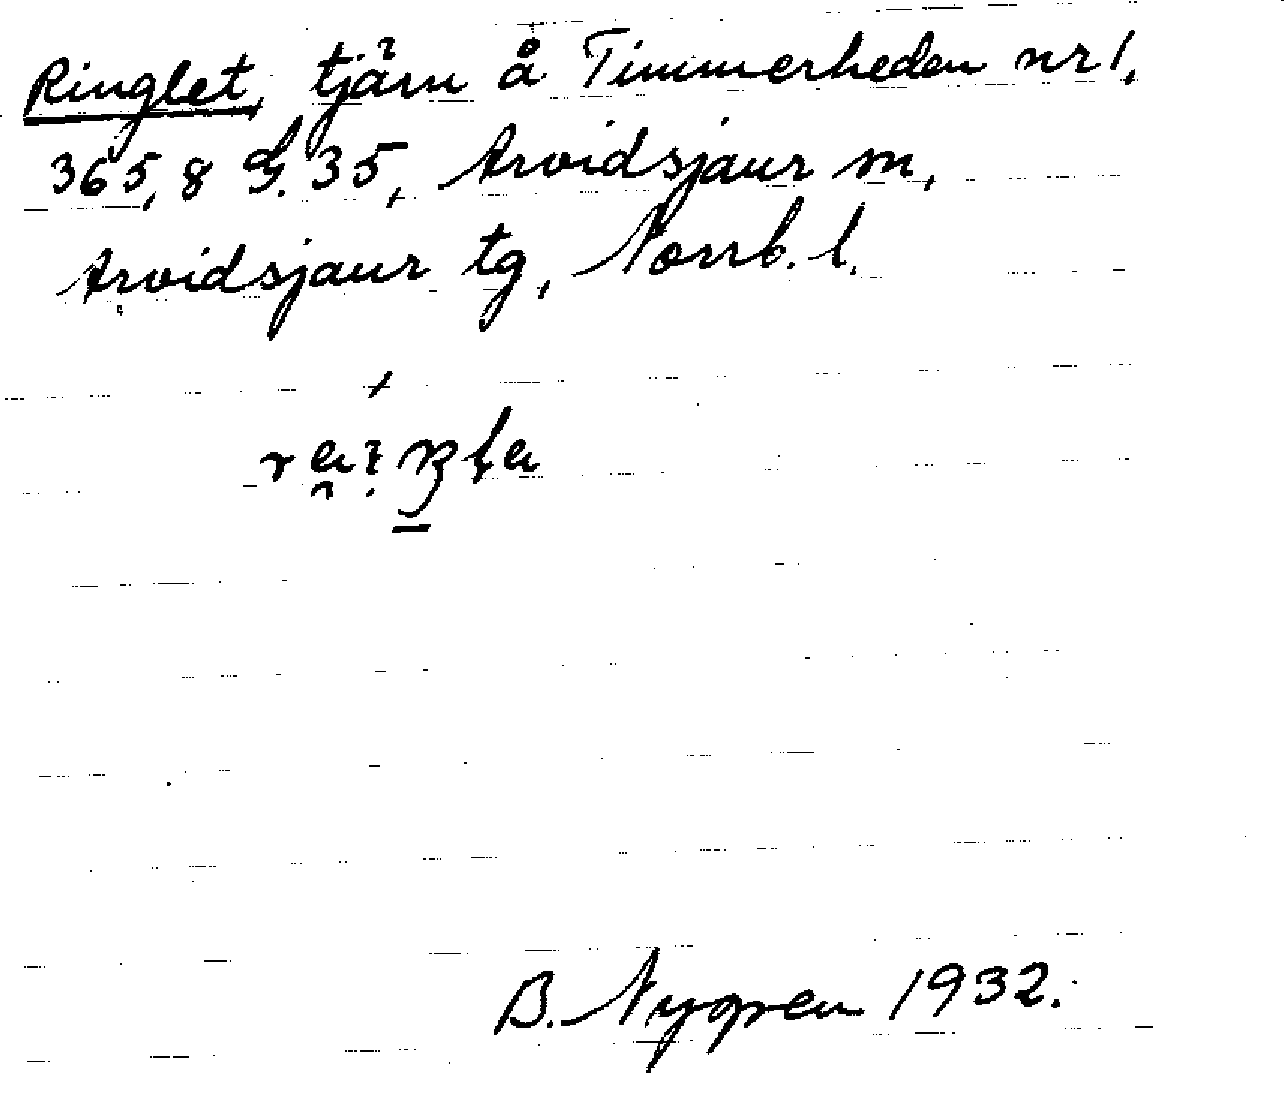 Ringlet, tjärn å Timmerheden nr 1,
365,8 G. 35, Arvidsjaur m,
Arvidsjaur tg, Norrb. l.
B. Nygren 1932.